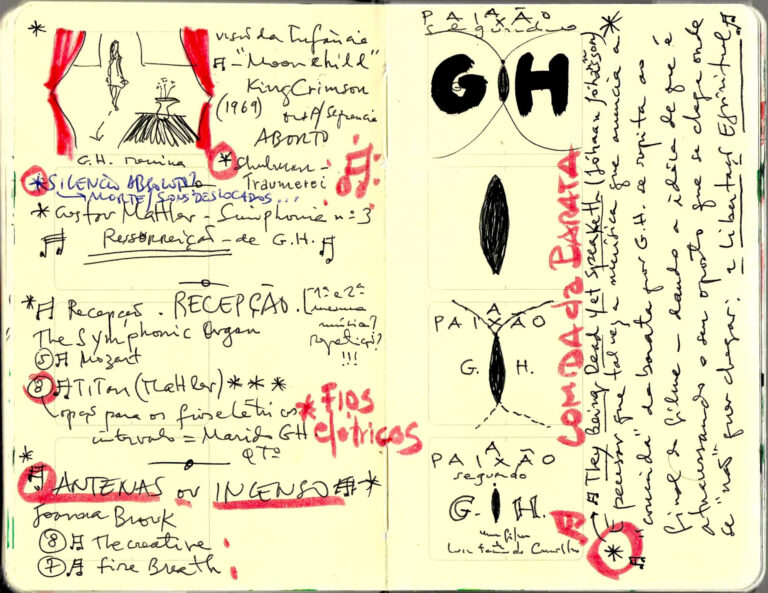 visão da Infância
"Moonchild"
King Crimson
(1969)
ABORTO
G.H. menina
* Schuman -
Traumerei
* SILÊNCIO ABSOLUTO
MORTE/SONS DESLOCADOS...
* Gustav Mahller - Simphonie nº 3
Ressurreição - de G.H.
* Recepção. RECEPÇÃO. [1ª e 2ª
mesma
música?
repetição?
!!!
The Symphonic Organ
5 Mozart
3 TITAN (Mahller) ***
opção para os fios elétricos
* FIOS
elétricos
intervalo = Marido GH
QTO
* ANTENAS ou INCENSO *
Joanna Brouk
8 The creative
7 Fire Breath
PAIXÃO
segundo
G H
PAIXÃO
G. H.
PAIXÃO
segundo
G. H.
um filme
Luiz Fernando Carvalho
COMIDA da BARATA
* They Being Dead Yet Speaketh (Jóhann Jóhannsson) *
É pensar que talvez a música que anuncia a
"comida" da barata por G.H. se repita ao
final do filme - dando a ideia de que é
atravessando o seu oposto que se chega onde
se "não" quer chegar: a libertação Espiritual